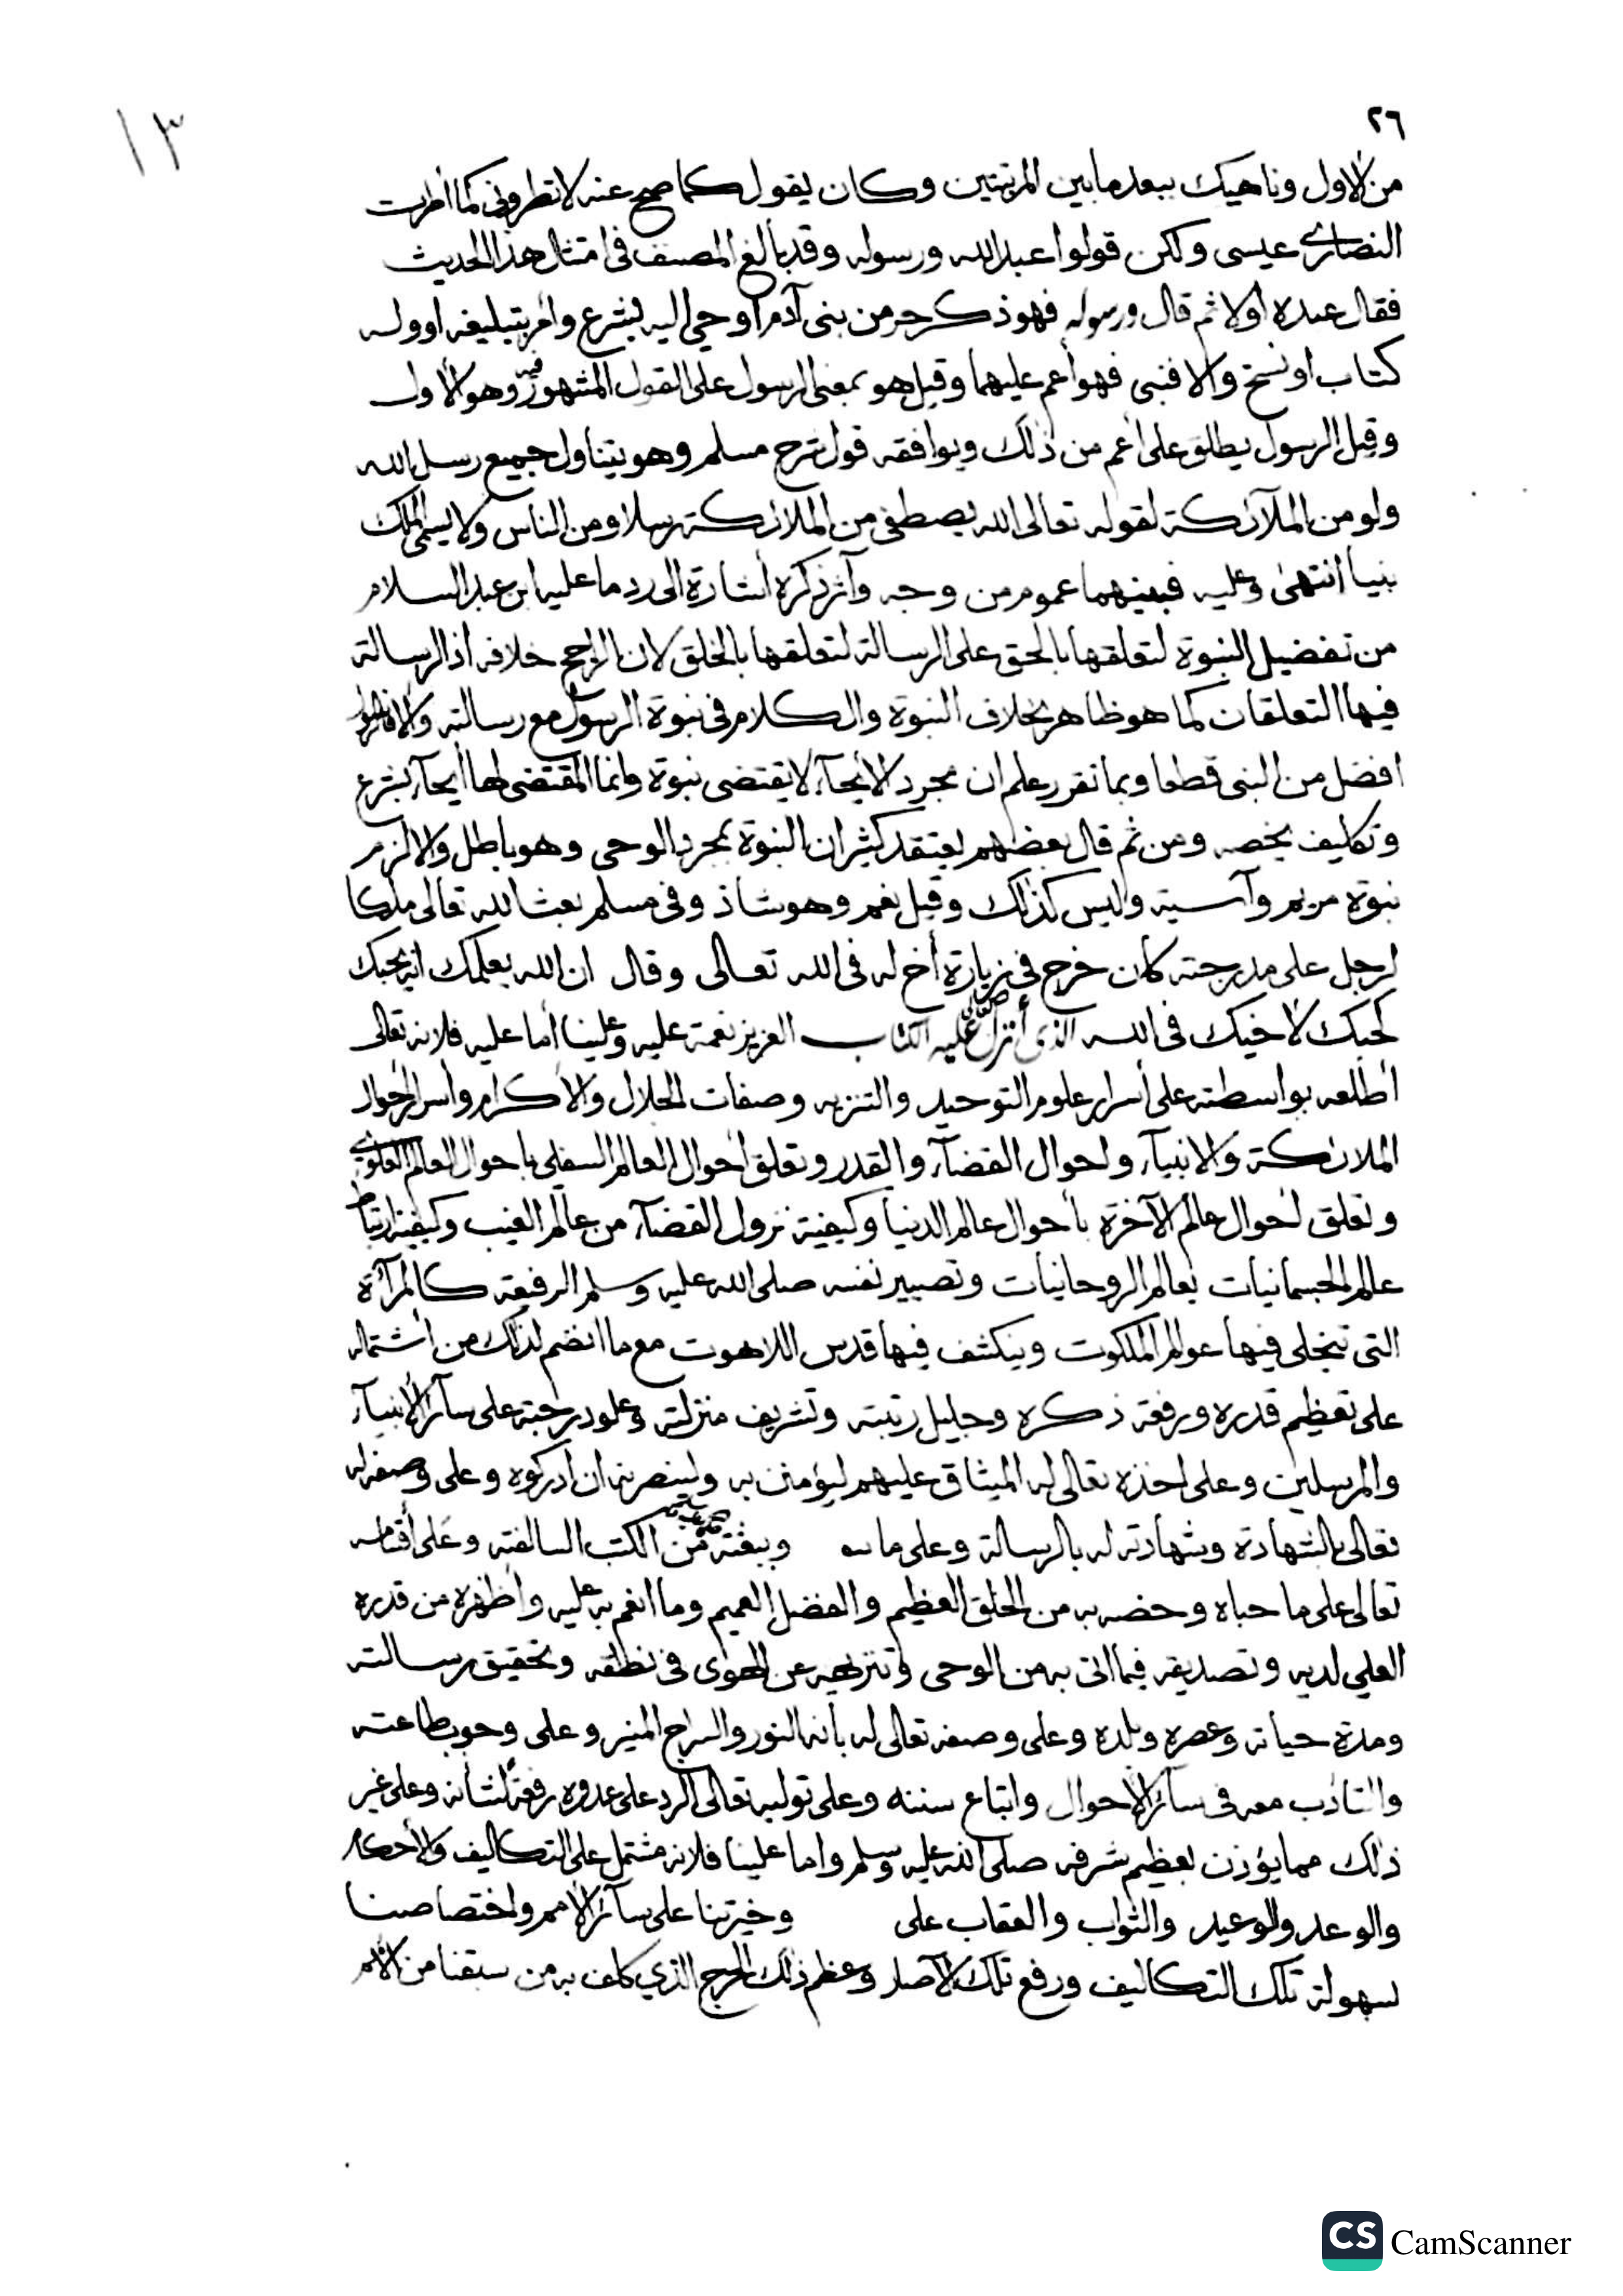 ٢٦
١٣
من الاول وناهيك ببعد ما بين المرتبتين وكان يقول كما صح عنه لا تطروني كما أطرت
النصارى عيسى ولكن قولوا عبد الله ورسوله وقد بالغ المصنف فى امتثال هذا الحديث
فقال عبده أولا ثم قال ورسوله فهو ذكر حر من بنى آدم أوحي اليه بشرع وأمر بتبليغه اوله
كتاب او نسخ والا فنبى فهو أعم عليهما وقيل هو بمعنى الرسول على القول المشهور فيه وهو الأول
وقيل الرسول يطلق على أعم من ذلك ويوافقه قول شرح مسلم وهو يتناول جميع رسل الله
ولو من الملآئكة لقوله تعالى الله يصطفى من الملائكة رسلا ومن الناس ولا يسمى الملك
نبيا انتهى وعليه فبينهما عموم من وجه وآثر ذكره اشارة الى رد ما عليه ابن عبد السلام
من تفضيل النبوة لتعلقها بالحق على الرسالة لتعلقها بالخلق لان الراجح خلافه اذ الرسالة
فيها التعلقان كما هو ظاهر بخلاف النبوة والكلام فى نبوة الرسول مع رسالته والا فالرسول
افضل من النبى قطعا وبما تقرر علم ان مجرد الايحآء لا يقتضى نبوة وانما المقتضى لها ايحآء بشرع
وتكليف يخصه ومن ثم قال بعضهم يعتقد كثير ان النبوة بمجرد الوحى وهو باطل والا لزم
نبوة مريم وآسية وليس كذلك وقيل نعم وهو شاذ وفى مسلم بعث الله تعالى ملكا
لرجل على مدرجته كان خرج فى زيارة أخ له فى الله تعالى وقال ان الله يعلمك انه يحبك
كحبك لأخيك فى الله الذى أنزل عليه الكتاب العزيز نعمة عليه وعلينا أما عليه فلانه تعالى
أطلعه بواسطته على أسرار علوم التوحيد والتنزيه وصفات الجلال والاكرام وأسرار أحوال
الملائكة والانبيآء واحوال القضآء والقدر وتعلق أحوال العالم السفلى باحوال العالم العلوى
وتعلق أحوال عالم الآخرة بأحوال عالم الدنيا وكيفية نزول القضآء من عالم الغيب وكيفية ارتباط
عالم الجسمانيات بعالم الروحانيات وتصيير نفسه صلى الله عليه وسلم الرفيعة كالمرآة
التى تتجلى فيها عوالم الملكوت وينكشف فيها قدس اللاهوت مع ما انضم لذلك من اشتماله
على تعظيم قدره ورفعة ذكره وجليل رتبته وتشريف منزلته وعلو درجته على سآئر الأنبيآء
والمرسلين وعلى اخذه تعالى له الميثاق عليهم ليؤمنن به ولينصرنه ان أدركوه وعلى وصفه له
تعالى بالشهادة وشهادته له بالرسالة وعلى ما وبعثه من الكتب السالفة وعلى أقسامه
تعالى على ما حباه وخصه به من الخلق العظيم والفضل العميم وما انعم به عليه وأظهره من قدره
العلي لديه وتصديقه فيما اتى به من الوحى وتنزيهه عن الهوى فى نطقه وتحقيق رسالته
ومدة حياته وعصره وبلده وعلى وصفه تعالى له بأنه النور والسراج المنير وعلى وجوب طاعته
والتأدب معه فى سآئر الأحوال واتباع سننه وعلى توليه تعالى الرد على عدوه رفعة لشأنه وعلى غير
ذلك مما يؤذن بعظيم شرفه صلى الله عليه وسلم واما علينا فلانه مشتمل على التكاليف والأحكام
والوعد والوعيد والثواب والعقاب على وخيرتنا على سآئر الأمم واختصاصنا
بسهولة تلك التكاليف ورفع تلك الآصار وعظم ذلك الحرج الذي كلف به من سبقنا من الأمم
CS CamScanner